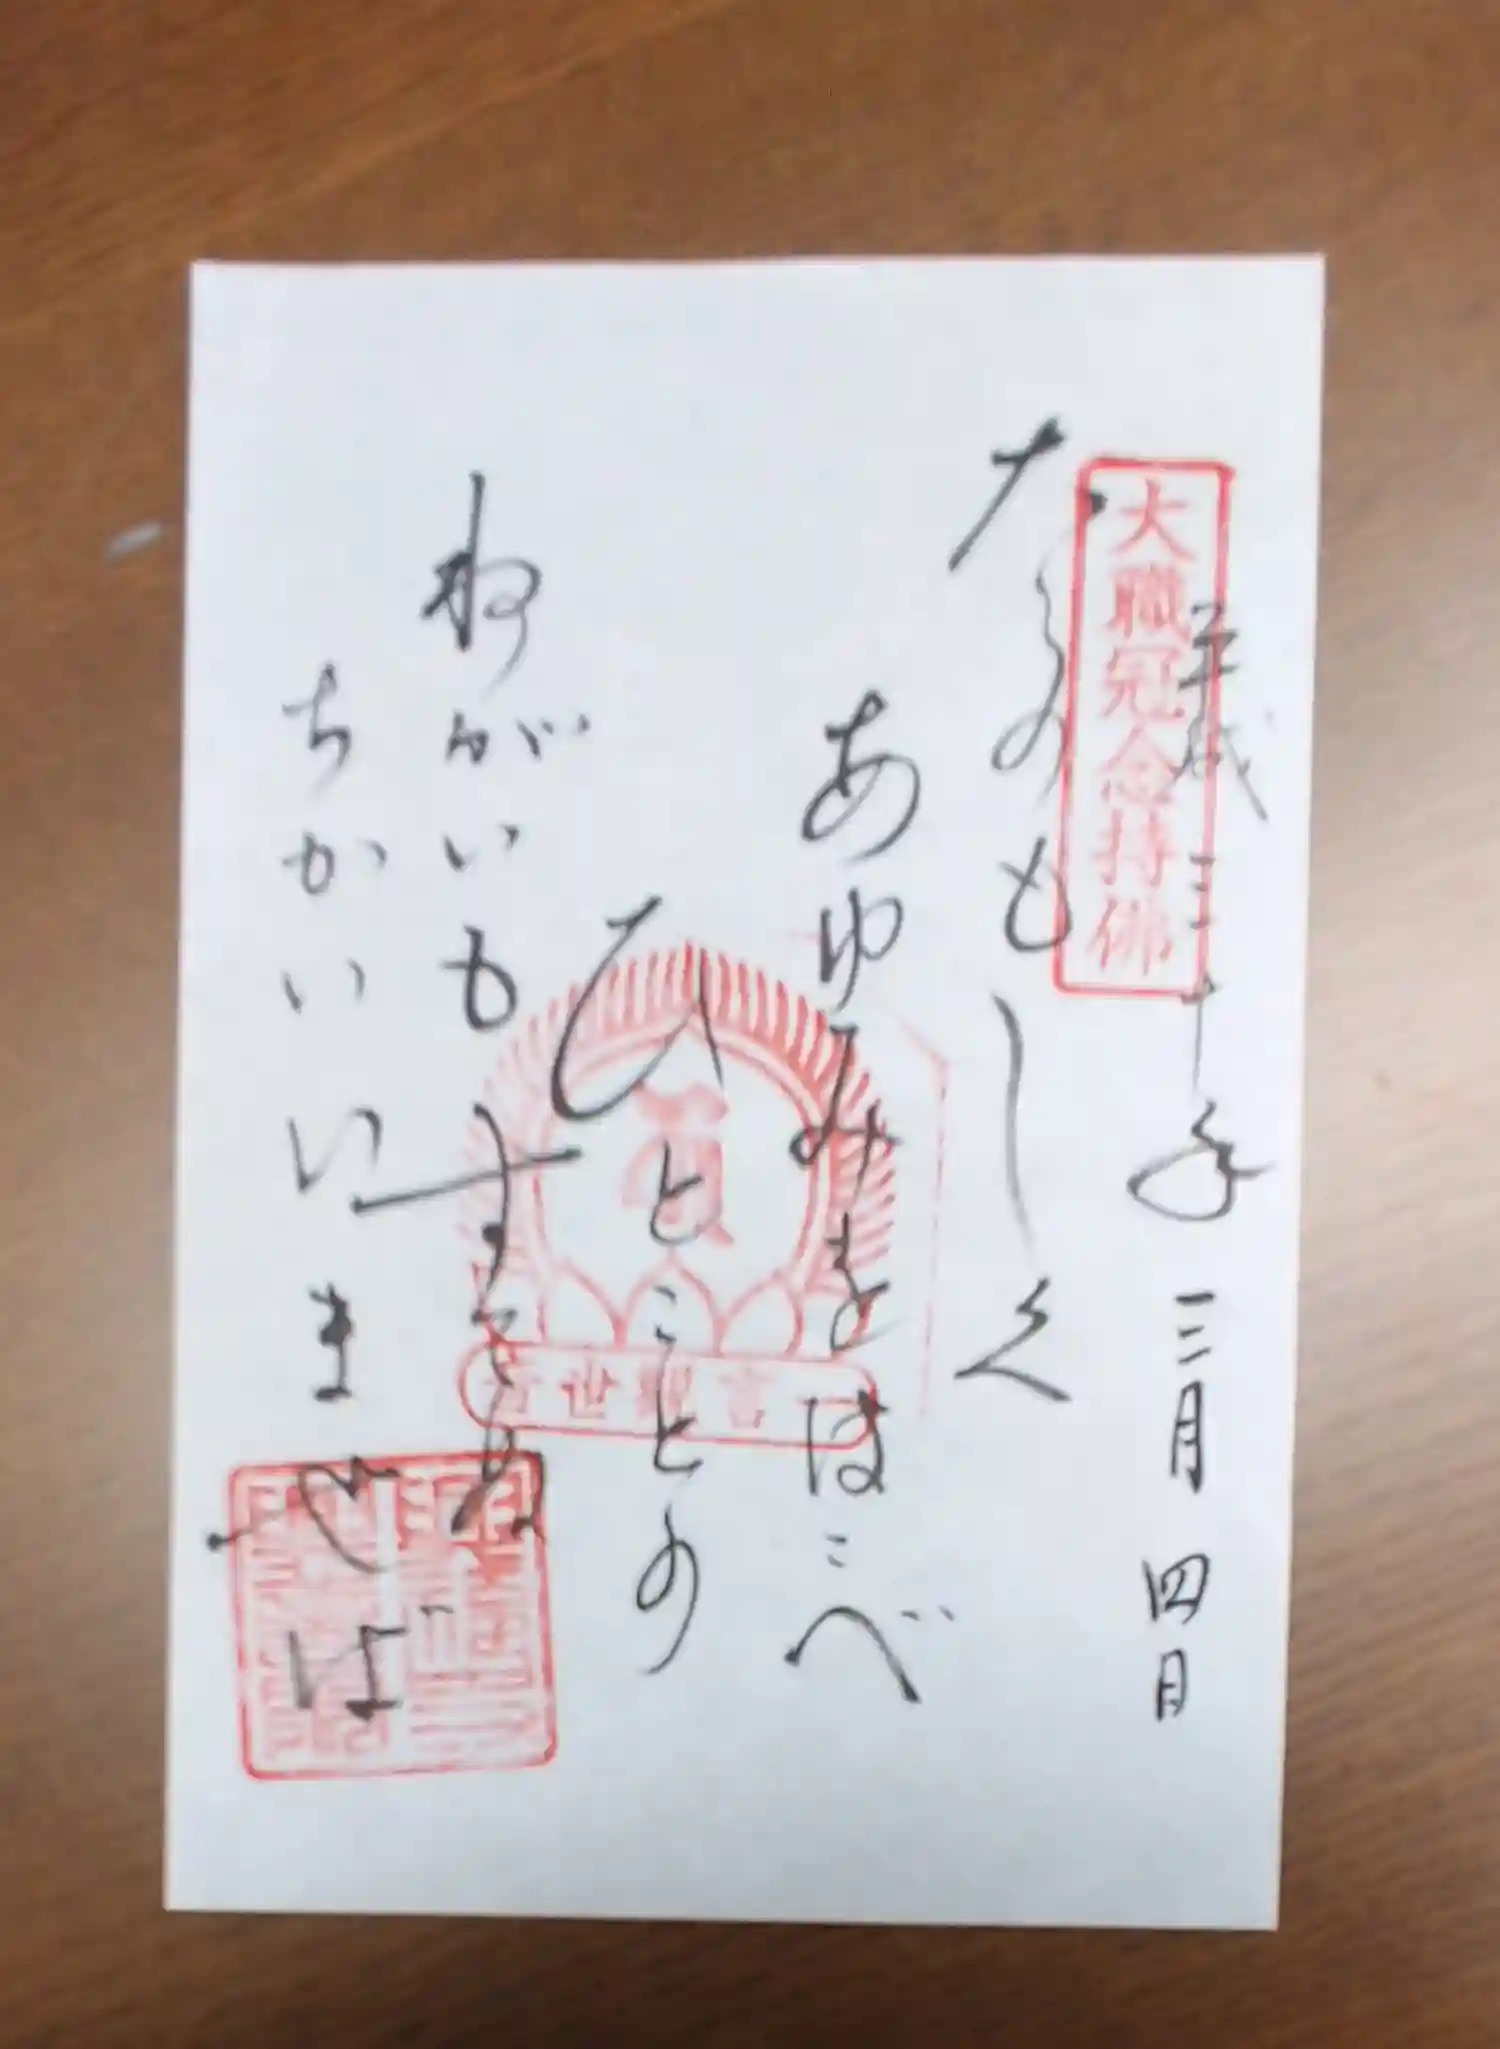 平成三十年 三月 四日
大職冠念持佛
たのもしく
あゆみをはこべ
ひとことの
ねがいもすてぬ
ちかいいませば
世觀音